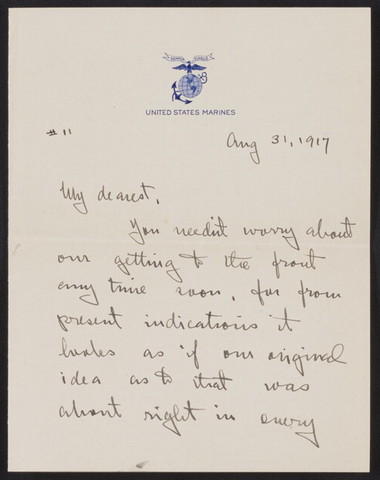 UNITED STATES MARINES
# 11
Aug 31, 1917
My dearest,
You needn't worry about
our getting to the front
any time soon, for from
present indications it
looks as if our original
idea as to that was
about right in every